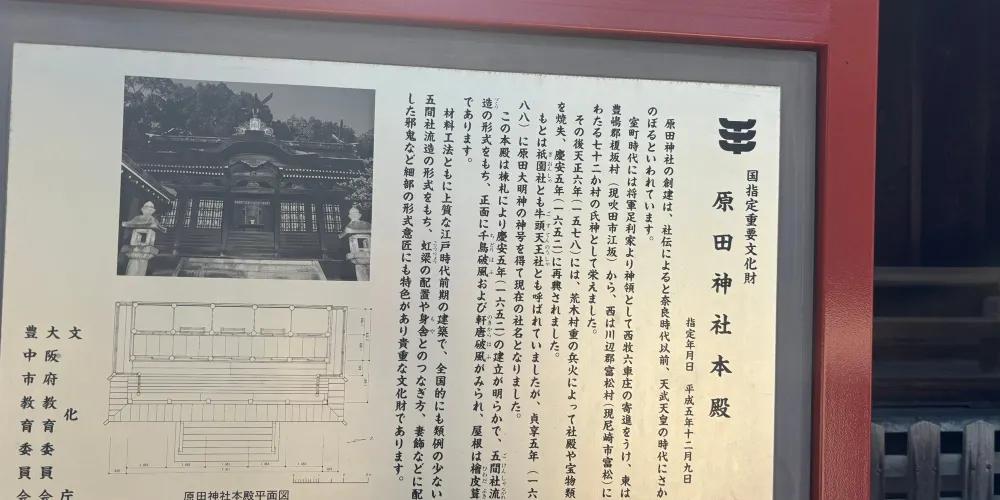 国指定重要文化財
原田神社本殿
指定年月日　平成五年十二月九日
原田神社の創建は、社伝によると奈良時代以前、天武天皇の時代にさか
のぼるといわれています。
室町時代には将軍足利家より神領として西牧六車庄の寄進をうけ、東は
豊嶋郡榎坂村（現吹田市江坂）から、西は川辺郡富松村（現尼崎市富松）に
わたる七十二か村の氏神として栄えました。
その後天正六年（一五七八）には、荒木村重の兵火によって社殿や宝物類
を焼失、慶安五年（一六五二）に再興されました。
もとは祇園社とも牛頭天王社とも呼ばれていましたが、貞享五年（一六
八八）に原田大明神の神号を得て現在の社名となりました。
この本殿は棟札により慶安五年（一六五二）の建立が明らかで、五間社流
造の形式をもち、正面に千鳥破風および軒唐破風がみられ、屋根は檜皮葺
であります。
材料工法ともに上質な江戸時代前期の建築で、全国的にも類例の少ない
五間社流造の形式をもち、虹梁の配置や身舎とのつなぎ方、妻飾などに配
した邪鬼など細部の形式意匠にも特色があり貴重な文化財であります。
文化庁
大阪府教育委員会
豊中市教育委員会
原田神社本殿平面図